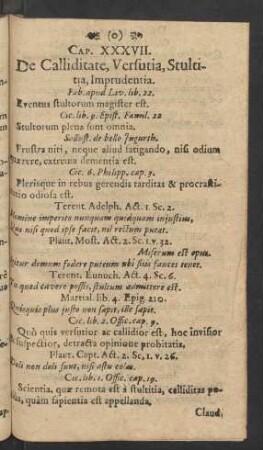 (o)
CAP. XXXVII.
De Calliditate, Versutia, Stulti-
tia, Imprudentia.
Fab. apud Liv. lib. 22.
Eventus stultorum magister est.
Cic. lib. 9. Epist. Famil. 22
Stultorum plena sunt omnia.
Sallust. de bello Jugurth.
Frustra niti, neque aliud fatigando, nisi odium
quærere, extrema dementia est.
Cic. 6. Philipp. cap. 3.
Plerisque in rebus gerendis tarditas & procrasti-
natio odiosa est.
Terent. Adelph. Act. 1. Sc. 2.
Homine imperito nunquam quidquam injustius,
Qui nisi quod ipse facit, nil rectum putat.
Plaut. Most. Act. 2. Sc. 1. v. 32.
Miserum est opus
demum fodere puteum ubi sitis fauces tenet.
Terent. Eunuch. Act. 4. Sc. 6.
quod cavere possis, stultum admittere est.
Martial. lib. 4. Epig. 210.
Quisquis plus justo non sapit, ille sapit.
Cic. lib. 2. Offic. cap. 9.
Quò quis versutior ac callidior est, hoc invisior
& suspectior, detracta opinione probitatis.
Plaut. Capt. Act. 2. Sc. 1. v. 26.
Doli non doli sunt, nisi astu colas
Cic. lib. 1. Offic. cap. 19.
Scientia, quæ remota est à stultitia, calliditas po-
tius, quàm sapientia est appellanda.
Claud.